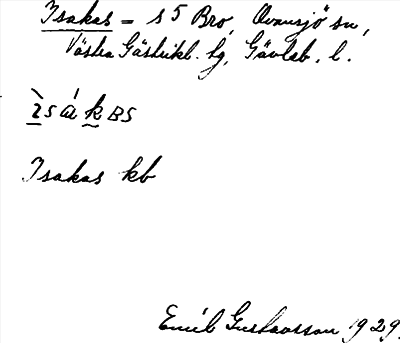 Isakas – s 5 Bro, Ovansjö sn,
Västra Gästrikl. hg, Gävleb. l.
ìsákBS
Isakas kb
Emil Gustavsson 1929.